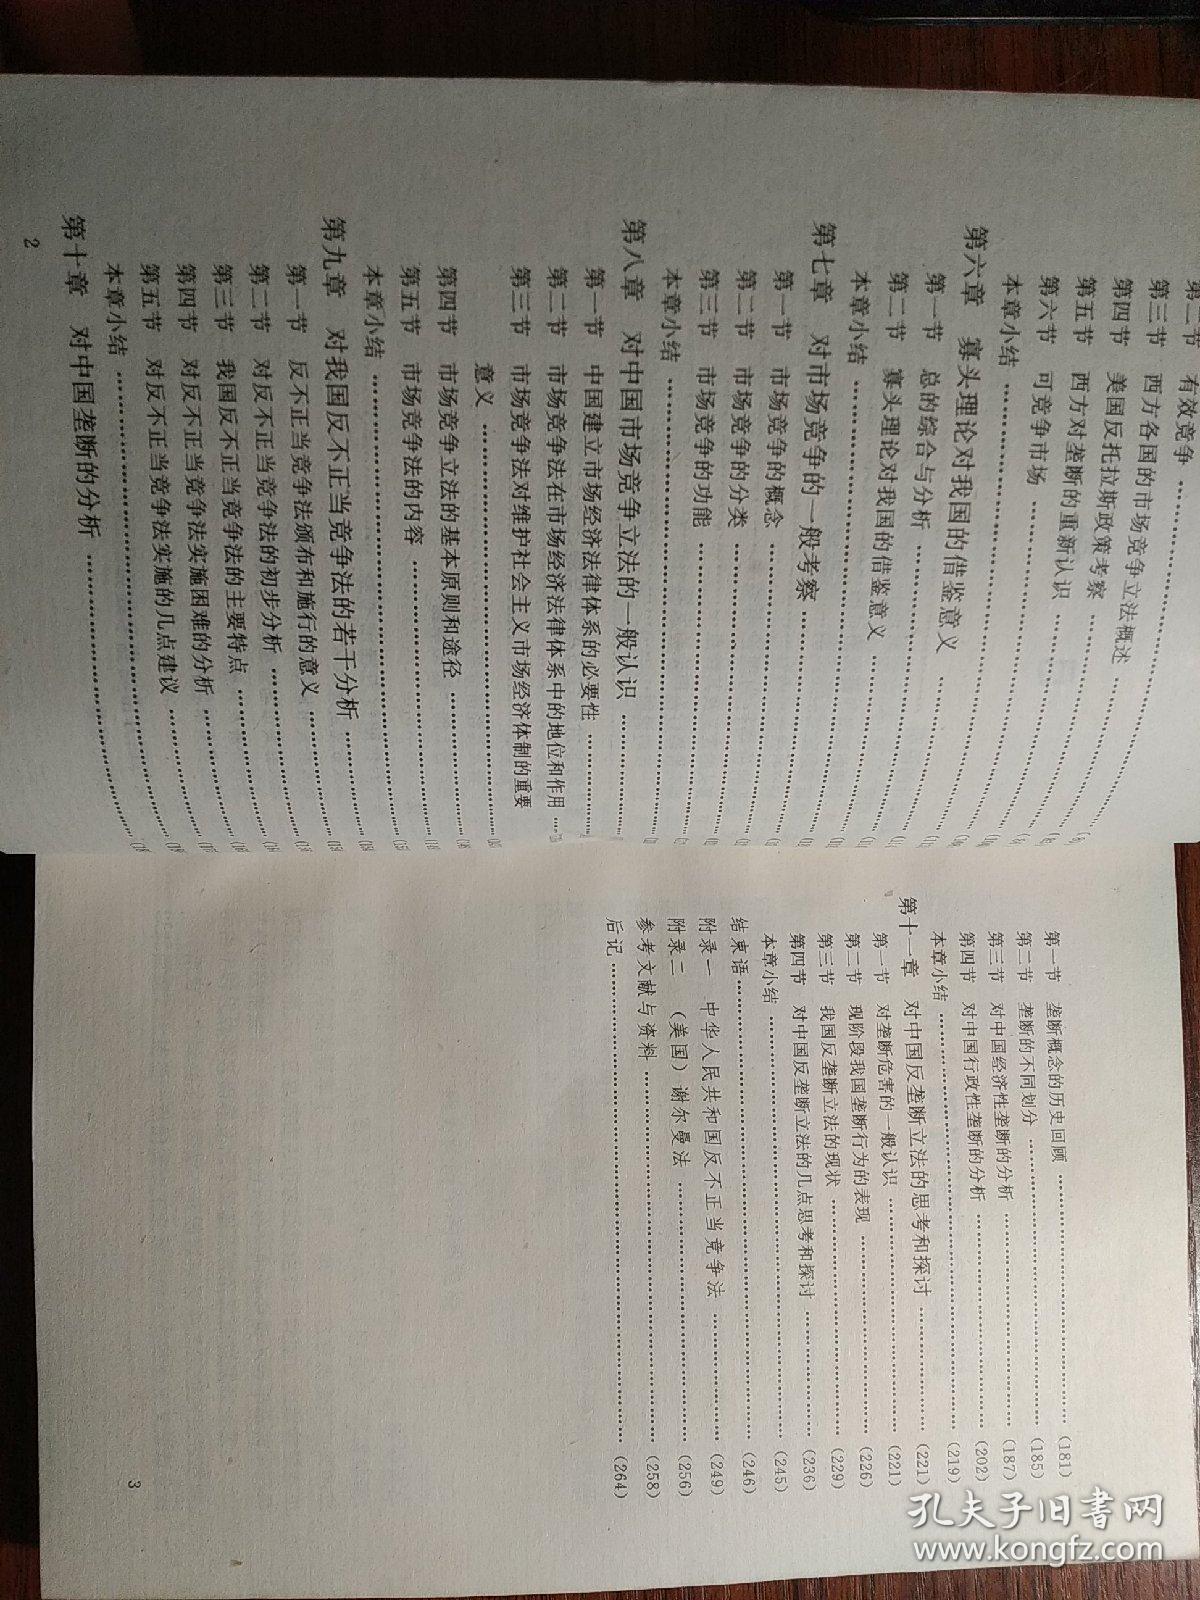 第二节 有效竞争
第三节 西方各国的市场竞争立法概述
第四节 美国反托拉斯政策考察
第五节 西方对垄断的重新认识
第六节 可竞争市场
本章小结
第六章 寡头理论对我国的借鉴意义
第一节 总的综合与分析
第二节 寡头理论对我国的借鉴意义
本章小结
第七章 对市场竞争的一般考察
第一节 市场竞争的概念
第二节 市场竞争的分类
第三节 市场竞争的功能
本章小结
第八章 对中国市场竞争立法的一般认识
第一节 中国建立市场经济法律体系的必要性
第二节 市场竞争法在市场经济法律体系中的地位和作用
第三节 市场竞争法对维护社会主义市场经济体制的重要
意义
第四节 市场竞争立法的基本原则和途径
第五节 市场竞争法的内容
本章小结
第九章 对我国反不正当竞争法的若干分析
第一节 反不正当竞争法颁布和施行的意义
第二节 对反不正当竞争法的初步分析
第三节 我国反不正当竞争法的主要特点
第四节 对反不正当竞争法实施困难的分析
第五节 对反不正当竞争法实施的几点建议
本章小结
第十章 对中国垄断的分析
2
第一节 垄断概念的历史回顾 (181)
第二节 垄断的不同划分 (185)
第三节 对中国经济性垄断的分析 (187)
第四节 对中国行政性垄断的分析 (202)
本章小结 (219)
第十一章 对中国反垄断立法的思考和探讨 (221)
第一节 对垄断危害的一般认识 (221)
第二节 现阶段我国垄断行为的表现 (226)
第三节 我国反垄断立法的现状 (229)
第四节 对中国反垄断立法的几点思考和探讨 (236)
本章小结 (245)
结束语 (246)
附录一 中华人民共和国反不正当竞争法 (249)
附录二 (美国)谢尔曼法 (256)
参考文献与资料 (258)
后记 (264)
3
孔夫子旧书网
www.kongfz.com